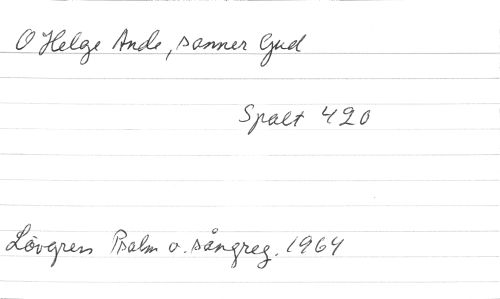 O Helge Ande, sanner Gud
Spalt 420
Lövgren Psalm o. sångreg. 1964